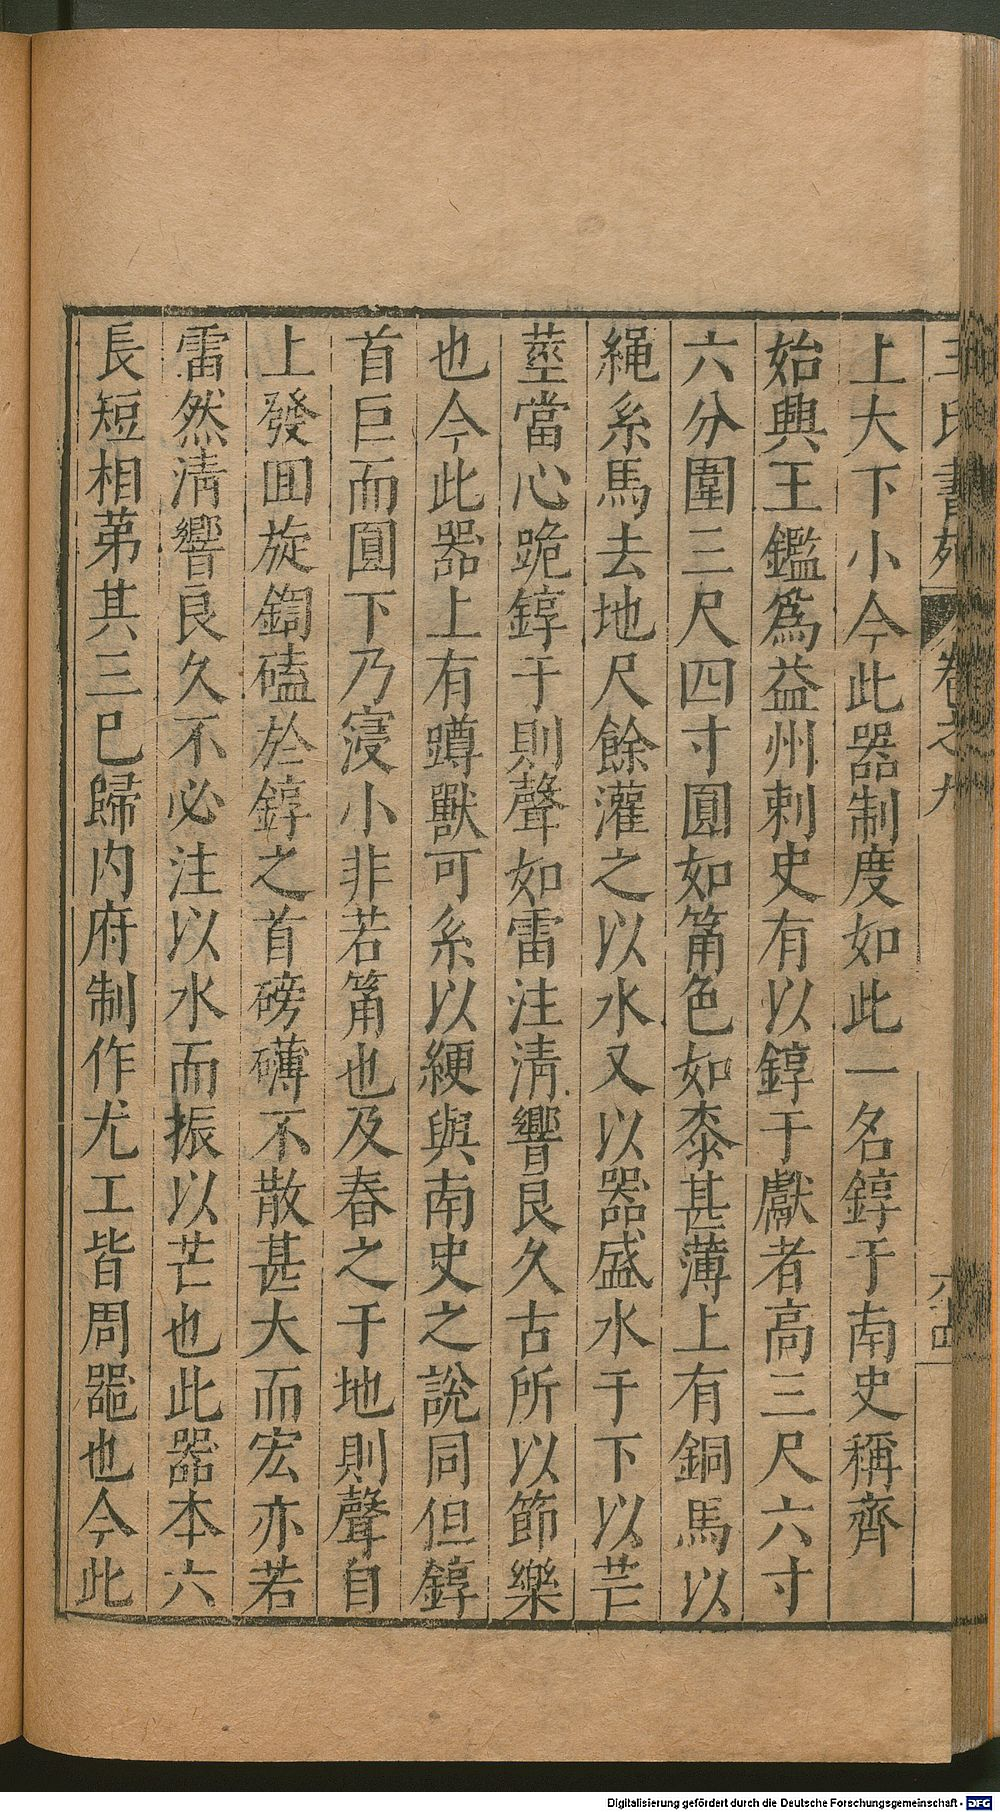 王氏書苑 卷之九
上大下小今此器制度如此一名錞于南史稱齊
始興王鑑爲益州刺史有以錞于獻者高三尺六寸
六分圍三尺四寸圓如筩色如桼甚薄上有銅馬以
繩系馬去地尺餘灌之以水又以器盛水于下以芒
莖當心跪錞于則聲如雷注清響良久古所以節樂
也今此器上有蹲獸可系以綆與南史之說同但錞
首巨而圓下乃寖小非若筩也及舂之于地則聲自
上發回旋鍧磕於錞之首磅礡不散甚大而宏亦若
雷然清響良久不必注以水而振以芒也此器本六
長短相弟其三已歸内府制作尤工皆周噐也今此
Digitalisierung gefördert durch die Deutsche Forschungsgemeinschaft - DFG